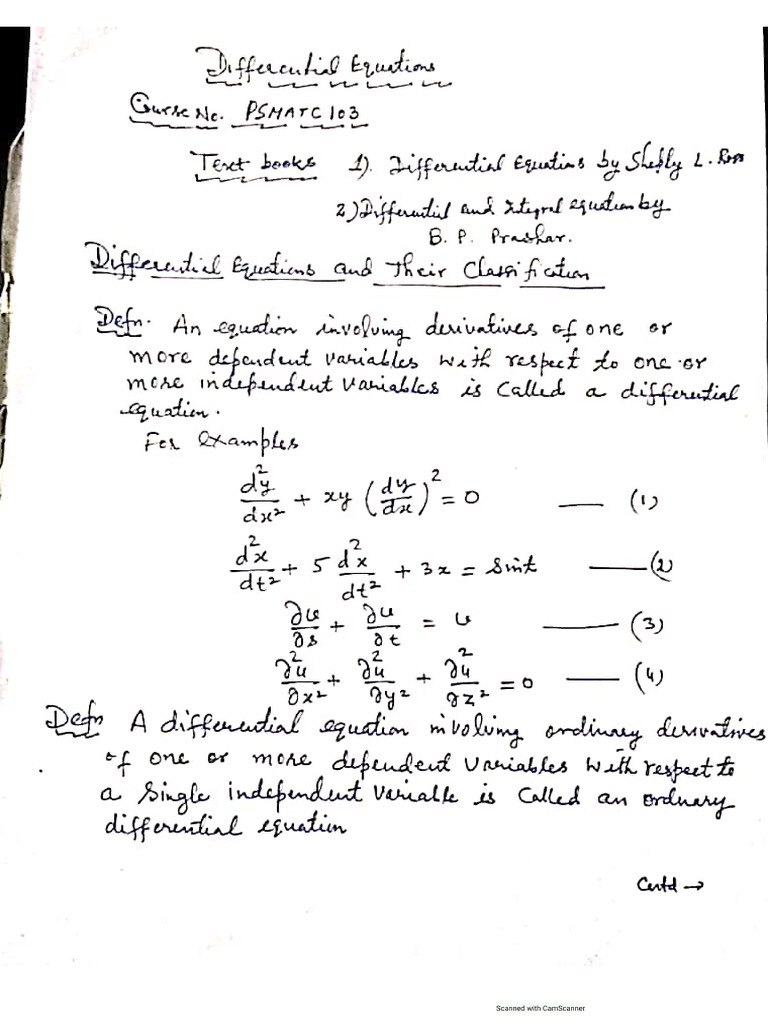 Differential Equations
Course No. PSMATC103
Text books 1). Differential Equations by Sheply L. Ross
2) Differential and Integral equation by
B. P. Prashar.
Differential Equations and Their Classification
Defn. An equation involving derivatives of one or
more dependent variables with respect to one or
more independent variables is called a differential
equation.
For examples
d²y/dx² + xy (dy/dx)² = 0 — (1)
d²x/dt² + 5 d²x/dt² + 3x = Sint — (2)
∂u/∂s + ∂u/∂t = u — (3)
∂²u/∂x² + ∂²u/∂y² + ∂²u/∂z² = 0 — (4)
Defn A differential equation involving ordinary derivatives
of one or more dependent variables with respect to
a single independent variable is called an ordinary
differential equation
Contd →
Scanned with CamScanner